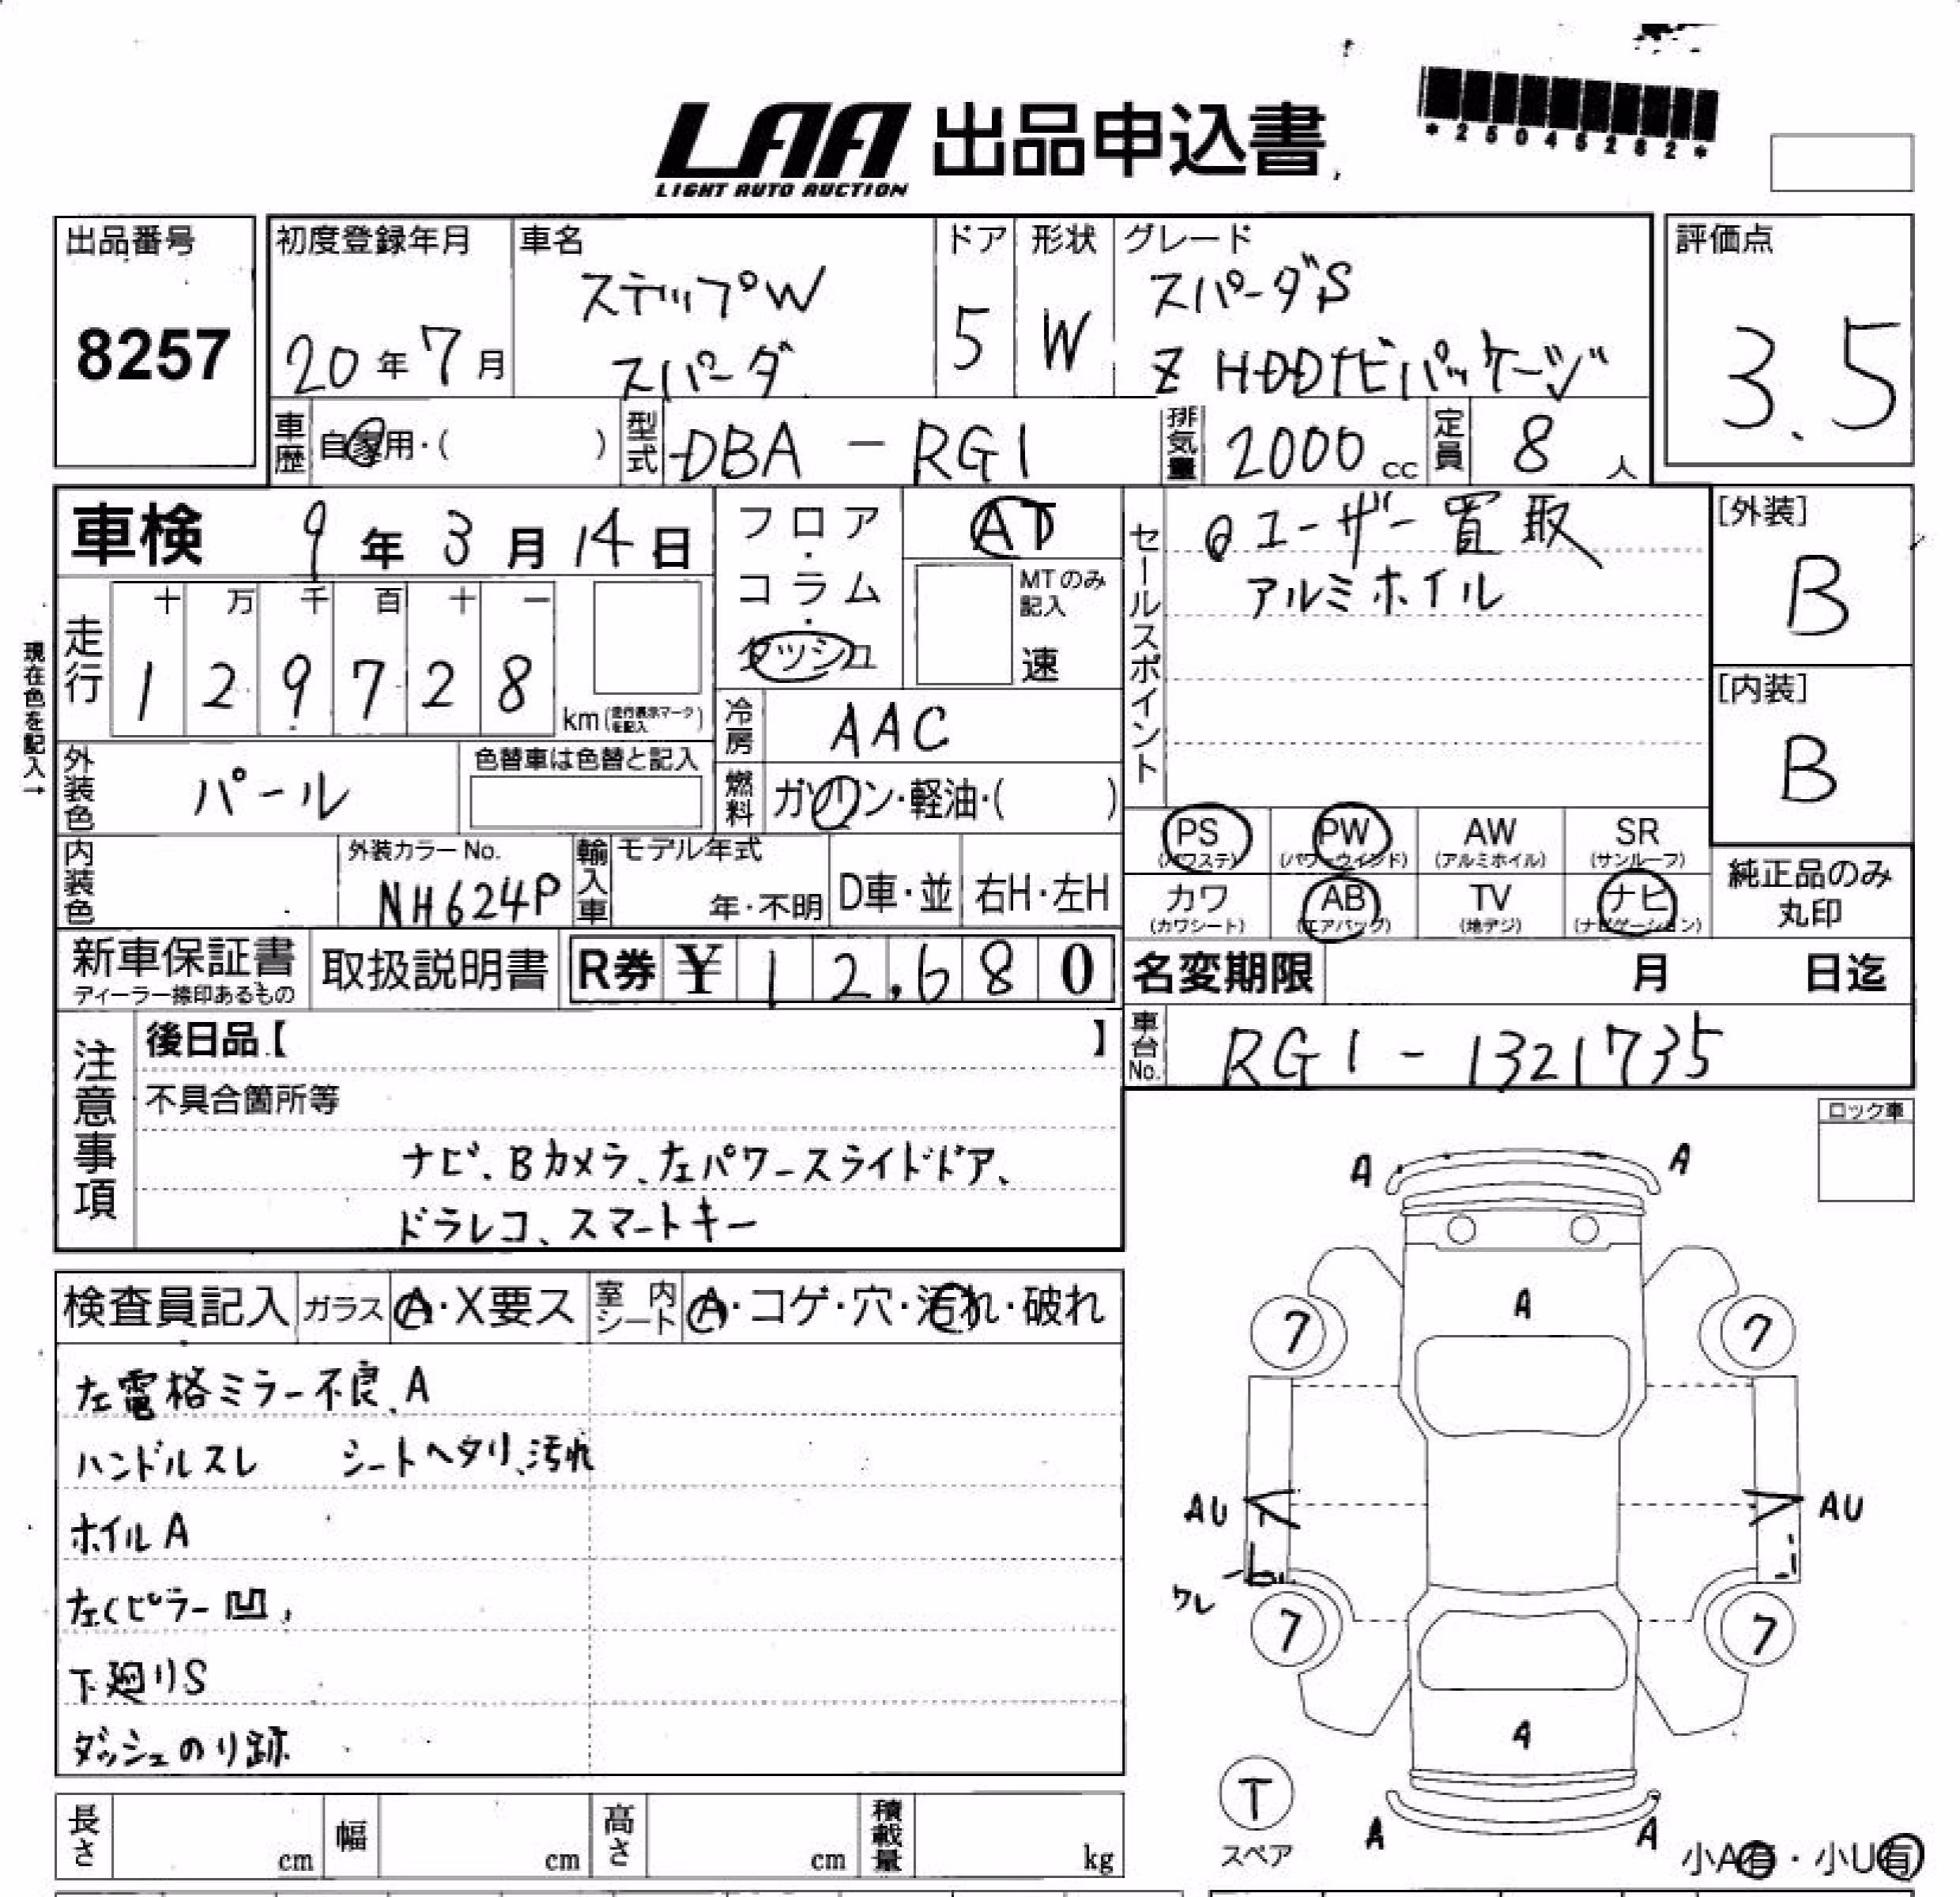 LAA 出品申込書
LIGHT AUTO AUCTION
*25045262*
出品番号
8257
初度登録年月
20年7月
車名
ステップW
スパーダ
ドア
5
形状
W
グレード
スパーダS
Z HDDナビパッケージ
評価点
3.5
車歴
自家用・( )
型式
DBA-RG1
排気量
2000cc
定員
8人
車検 9年3月14日
走行
十 万 千 百 十 一
1 2 9 7 2 8
km(走行表示マークを記入)
現在色を記入→
フロア・コラム・ダッシュ
AT
MTのみ記入
速
冷房
AAC
燃料
ガソリン・軽油・( )
外装色
パール
色替車は色替と記入
内装色
外装カラーNo.
NH624P
輸入車
モデル年式
年・不明
D車・並
右H・左H
セールスポイント
ユーザー買取
アルミホイル
[外装]
B
[内装]
B
PS
(パワステ)
PW
(パワーウィンド)
AW
(アルミホイル)
SR
(サンルーフ)
カワ
(カワシート)
AB
(エアバッグ)
TV
(地デジ)
ナビ
(ナビゲーション)
純正品のみ
丸印
新車保証書
ディーラー捺印あるもの
取扱説明書
R券 ¥12,680
名変期限 月 日迄
車台No.
RG1-1321735
注意事項
後日品【 】
不具合箇所等
ナビ、Bカメラ、左パワースライドドア、
ドラレコ、スマートキー
ロック車
検査員記入
ガラス
A・X要ス
室内シート
A・コゲ・穴・汚れ・破れ
左電格ミラー不良、A
ハンドルスレ シートヘタリ、汚れ
ホイルA
左Cピラー凹
下廻りS
ダッシュのり跡
A
A
A
7
7
AU
AU
ワレ
7
7
A
T
スペア
A
A
小A有・小U有
長さ
cm
幅
cm
高さ
cm
積載量
kg